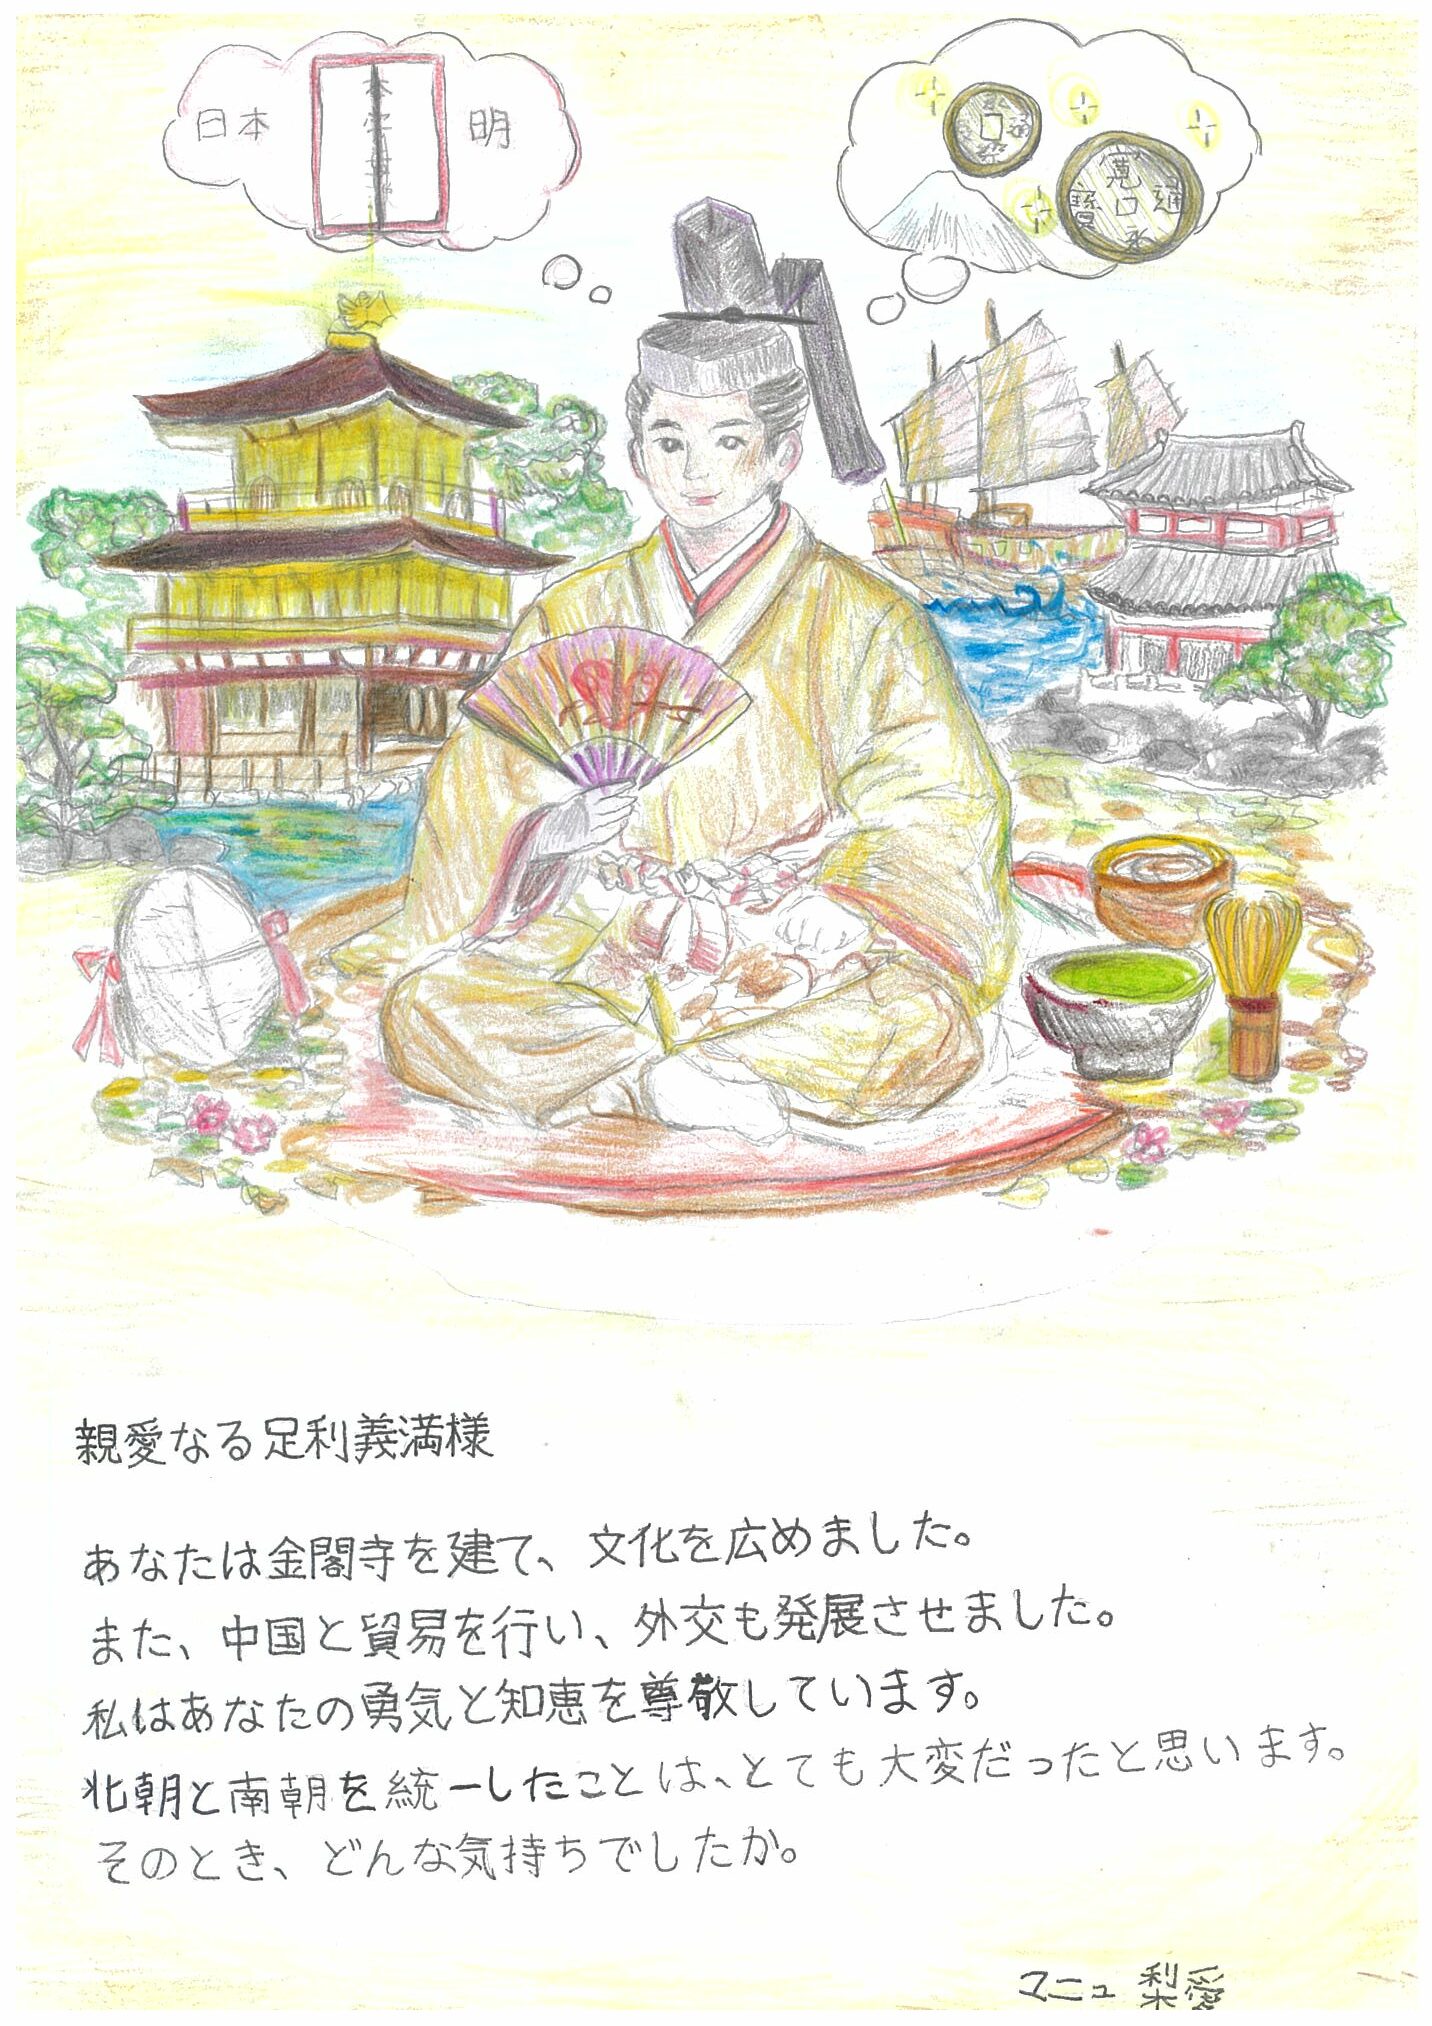 日本
本字壹號
明
寛永通寳
親愛なる足利義満様
あなたは金閣寺を建て、文化を広めました。
また、中国と貿易を行い、外交も発展させました。
私はあなたの勇気と知恵を尊敬しています。
北朝と南朝を統一したことは、とても大変だったと思います。
そのとき、どんな気持ちでしたか。
マニュ 梨愛